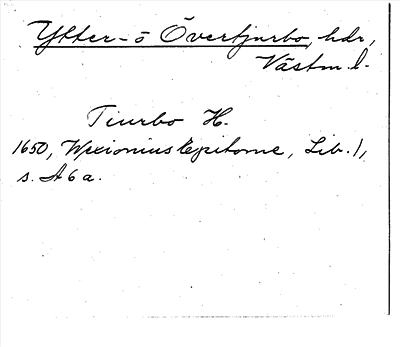 Ytter- o Övertjurbo, hdr,
Västm. l.
Tiurbo H.
1650, Wexionius Epitome, Lib. 1,
s. A 6 a.